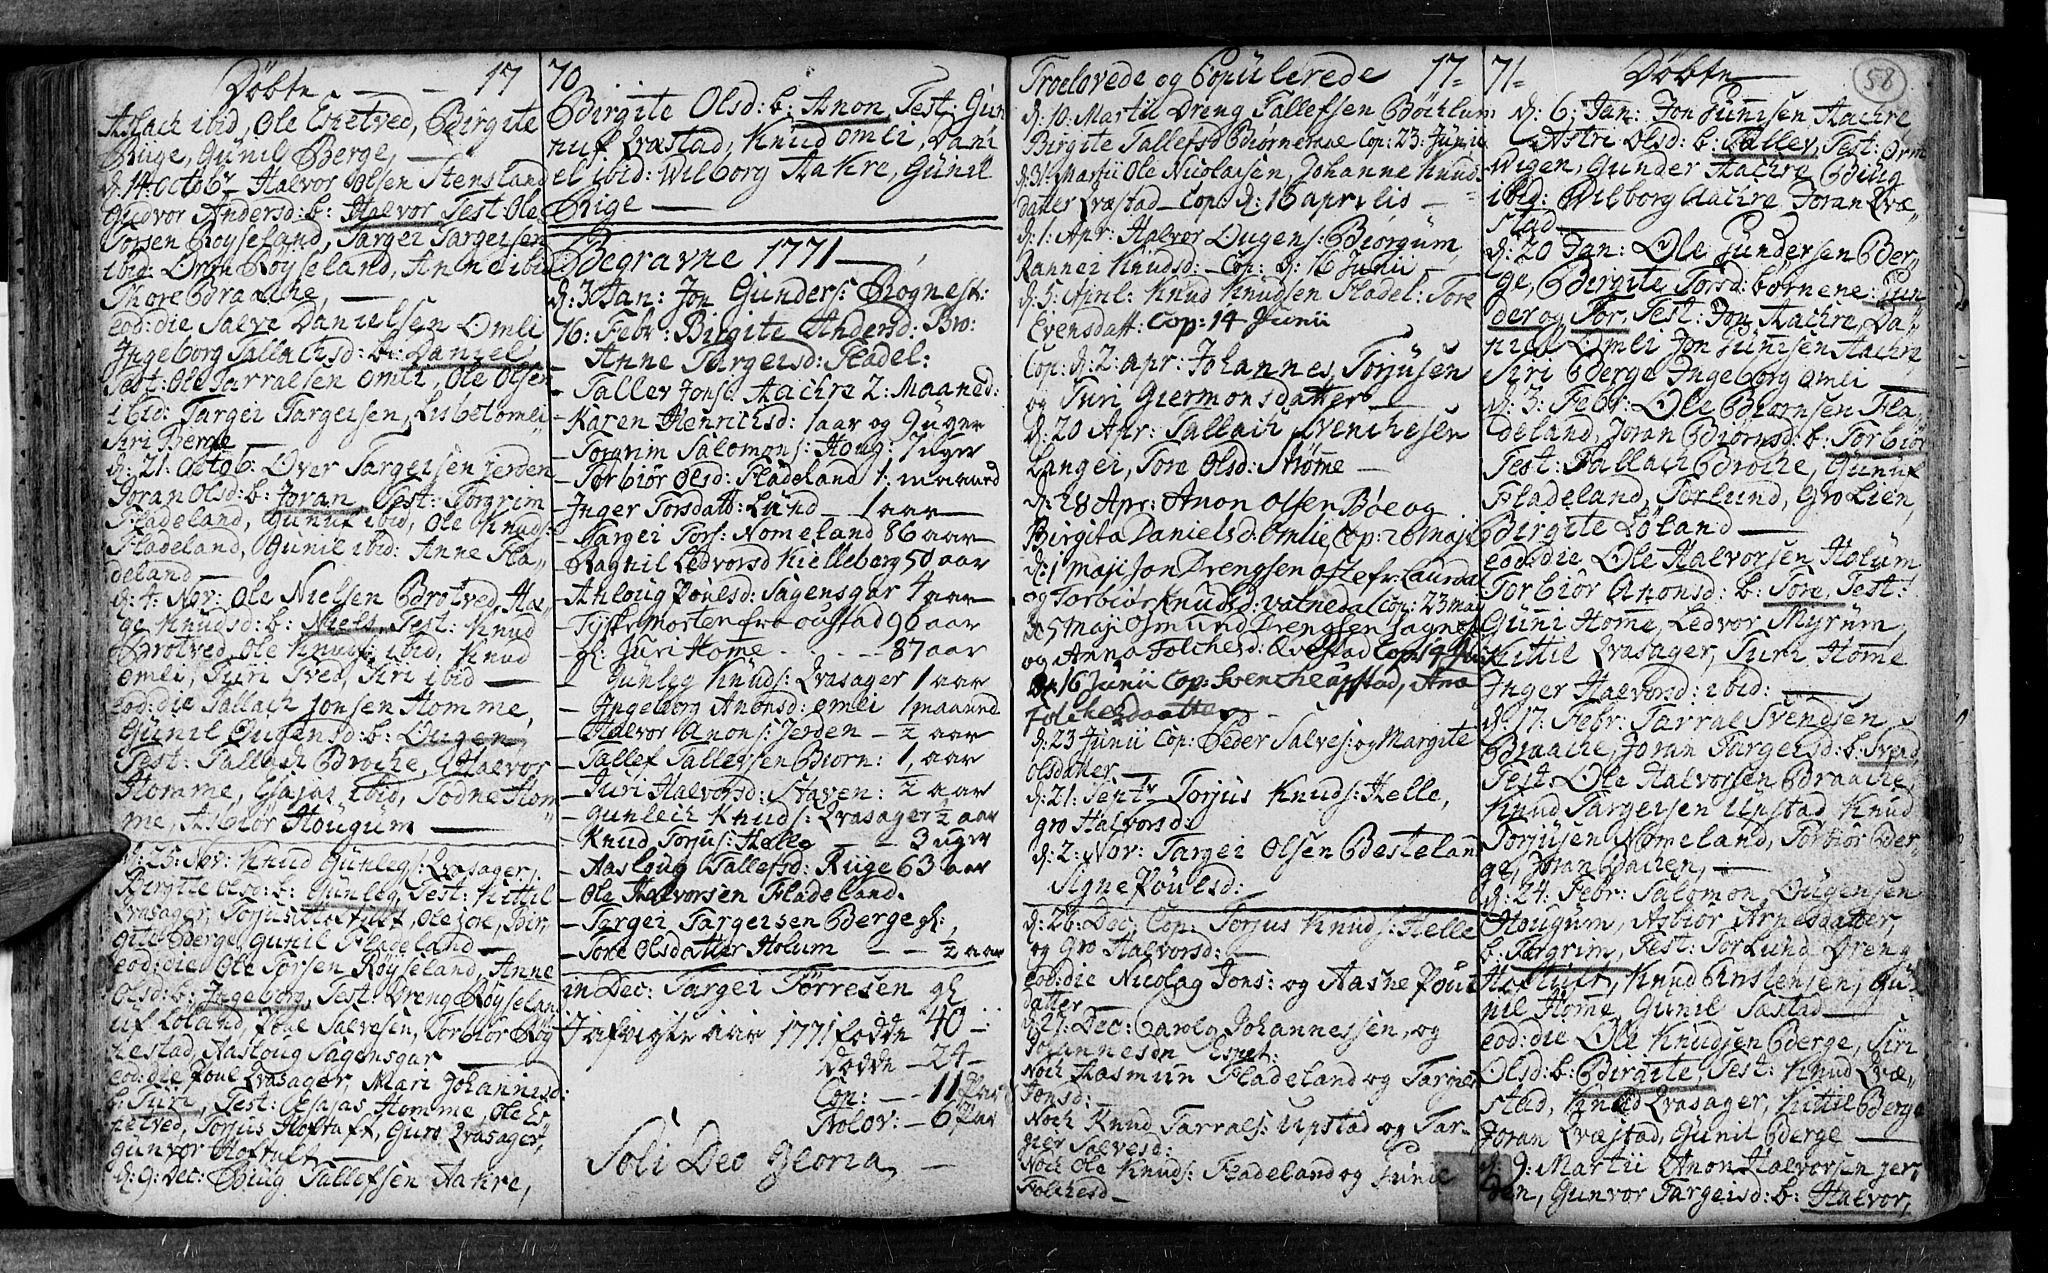 Döbte 17
Aslach ibid, Ole Espetved, Birgite
Riige, Günil Berge,
d: 14 octobr Halvor Olsen Stensland
Gudvor Andersd: b: Halvor Test: Ole
Torsen Röyseland, Targei Targeisen
ibid: Orm Röyseland, Anne ibid
Thore Braache,
eod: die Salve Danielsen Omli
Ingeborg Tallachsd: b: Daniel
Test: Ole Tarralsen omli, Ole Olsen
ibid: Targei Targeisen, Lisbet omli
Siri Berge
d: 21: Octob: Over Targeisen jerden
Joran Olsd: b: Joran Test: Torgrim
Fladeland, Gunuf ibid, Ole Knuds:
Fladeland, Gunil ibid: Anne Fla
deland
d: 4: Nov: Ole Nielsen Brotved, Aa
ge Knudsd: b: Niels, Test: Knud
Brotved, Ole Knuds: ibid, Knud
omli, Turi Tved, Siri ibid
eod: die Tallach Jonsen Homme,
Günil Ougensd: b: Ougen,
Test: Tallach Broche, Halvor
Homme, Esaias ibid, Todne Hom
me, Asbiör Hougum
d: 25: Nov: Knud Günlegs: Qvasager,
Birgitte olsd: b: Günleg Test: Kittil
Qvasager, Torjus Hoftuft, Ole ..., Bir
gite Berge, Gunil Fladeland
eod: die Ole Torsen Röyseland, Anne
Olsd: b: Ingeborg, Test: Dreng Röyselan
uf Loland, Poul Salvesen, Torbior Rög
nestad, Aasloug Sagensgar
eod: die Poul Qvasager, Mari Johannisd:
b: Turi, Test: Esajas Homme, Ole Es
petved, Torjus Hoftuft, Guro Qvasager,
Gunvor Hoftuft
d: 9: Dec: Biug Tallefsen Aakre,
70
Birgite Olsd: b: Anon Test: Gun
nuf Qvastad, Knud omli, Dani
el ibid: Wilborg Aakre, Günil
Riige
Begravne 1771
d: 3 Jan: Jon Gunders: Rognest:
16: Febr: Birgite Andersd: Bro:
Anne Targeisd: Fladel:
Tallev Jons: Aachre 2: Maaned:
Karen Henrichsd: 1 aar og 9 uger
Torgrim Salomons: Houg: 7 uger
Torbiör Olsd: Fladeland 1: maaned
Inger Torsdatt: Lund 1 aar
Targei Tors: Nomeland 86 aar
Ragnil Ledvorsd Kielleberg 50 aar
Ahloug Povelsd: Sagensgar 4 aar
Tyske Morten fra oustad 96 aar
gl: Juri Home 87 aar
Günleg Knuds: Qvasager 1 aar
Ingeborg Anonsd: omli 1 maaned
Halvor Anons: Jerden ½ aar
Tallef Tallefsen Biorn: 1, aar
Juri Halvorsd: Staven: ½ aar
Gunlech Knuds: Qvasager ½ aar
Knud Torjus: Helle 3 uger
Aasloug Tallefsd: Riige 63 aar
Ole Halvorsen Fladeland.
Targei Targeisen Berge gl:,
Tore Olsdatter Holum ½ aar
in Dec: Targei Törresen gl
I afvigte aar 1771 födde 40
dödde 24
Cop: 11 Par
Trolov: 6 Par
Soli Deo Gloria
Troelovede og Copulerede 17
d: 10. Martii Dreng Tallefsen Böchlum
Birgite Tallefsd Biörnemoe Cop: 23: Junii
d: 31: Martii Ole Nicolaisen, Johanne Knud
datter Qvæstad Cop: d: 16 aprilis
d: 1: Apr: Halvor Ougens: Biorgum
Rannei Knudsd: Cop: d: 16 Junii
d: 5: April: Knud Knudsen Fladel: Tore
Evensdatt: Cop: 14 Junii
Cop: d: 2: apr: Johannes Torjusen
og Turi Giermonsdatter
d: 20 Apr: Tallach Svenchesen
Langei, Tore Olsd: Ströme
d: 28 Apr: Anon olsen Böe og
Birgita Danielsd: Omlie, Cop: 20 Maji
d: 1 Maji Jon Drengsen ... Laurdal
og Torbiör Knudsd: Vatnedal Cop: 23 May
d: 5 Maji Osmund Drengsen Sagnes
og Anna Folchesd: Qvestad Cop: 14 Juni
d: 16 Junii Cop: Svenche upstad, Ana
Folchesdaatter
d: 23 Junii Cop: Peder Salves: og Margite
olsdatter
d: 21: Septr Torjus Knuds: Helle,
gro Halvorsd:
d: 2: Nov: Targei Olsen Besteland
Signe Poulsd:
d: 26: Dec. Cop: Torjus Knuds: Helle
og Gro Halvorsd:
eod: die Nicolay Jons: og Aasne Pouls
datter
d: 27: Dec: Carola Johannessen, og
Johannesen Espet:
Noch Aasmun Fladeland og Targier
Jonsd:
Noch Knud Tarrals: Upstad og Tar
gier Salvesd:
Noch Ole Knuds: Fladeland og Gunil
Folchesd
71 Döbte 58
d: 6: Jan: Jon Gunnisen Aachre
Astri Olsd: b: Tallev, Test: Orm
Wigen, Gunder Aachre Biug
ibid: Wilborg Aachre Joran Qvæ
stad
d: 20 Jan: Ole Gundersen Ber
ge, Birgite Torsd: börnene: Gun
der og Tor, Test: Jon Aachre, Da
niel Omli Jon Gunnisen Aachre
Siri Berge Ingeborg omli
d: 3: Febr: Ole Biörnsen Fla
deland, Joran Biörnsd: b: Torbiör
Test: Tallach Broche, Gunuf
Fladeland, Torlund, Gro Lien,
Birgite Löland
eod: die, Ole Halvorsen Holum
Torbior Anonsd: b: Tore, Test:
Guni Home, Ledvor Myrum
Kittil Qvasager, Turi Home
Inger Halvorsd: ibid:
d: 17: Febr: Tarral Svendsen
Braache, Joran Targeisd: b: Svend
Test: Ole Halvorsen Braache
Knud Targeisen Upstad Knud
Torjusen Nomeland, Torbior Ber
ge, Joran Bachen,
d: 24: Febr: Salomon Ougensen
Hougum, Asbior Arnesdatter,
b: Torgrim, Test: Tor Lund Dreng
Hoftuft, Knud Enstensen, Gu
nil Home, Gunil Sastad
eod: die Ole Knudsen Berge, Siri
Olsd: b: Birgite Test: Knud Qvæ
stad, Knud Qvasager, Kittil Berge
Joran Qvæstad, Gunil Berge
d: 9: Martii Anon Halvorsen jer
den, Gunvor Targeisd: b: Halvor,